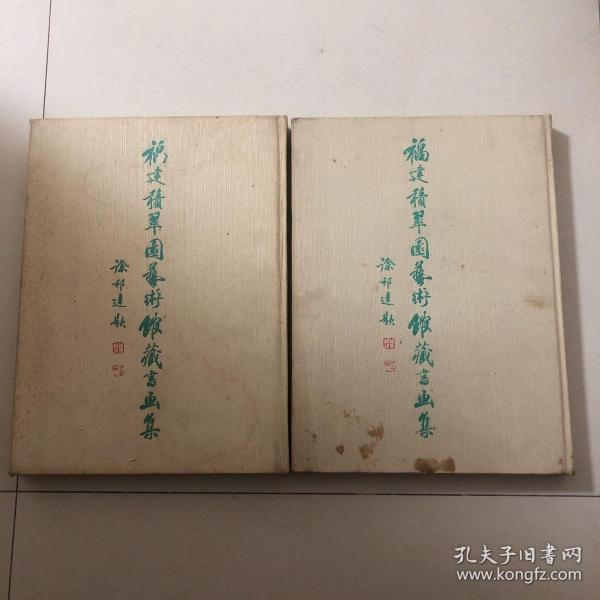 福建積翠園藝術館藏書画集
徐邦達題
福建積翠園藝術館藏書画集
徐邦達題
孔夫子旧书网
www.kongfz.com